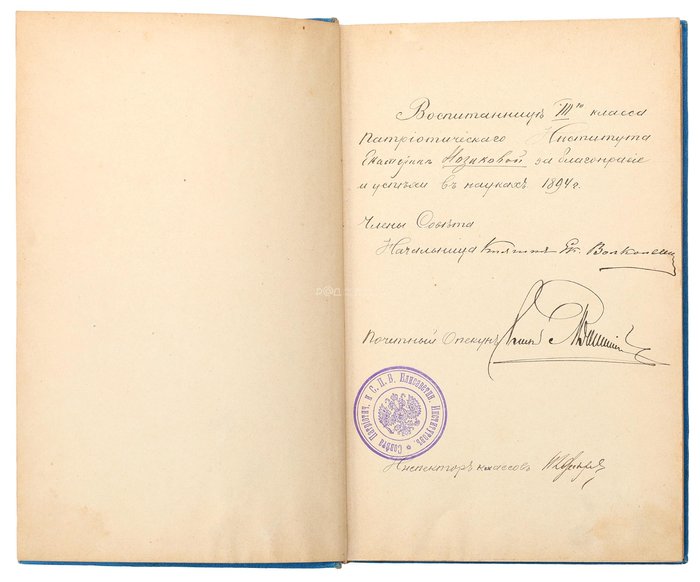 Воспитанницѣ IIIго класса
Патріотическаго Института
Екатеринѣ Нозиковой за благонравіе
и успѣхи въ наукахъ 1894 г.
Члены Совѣта
Начальница Княгиня Ек. Волконская
Почетный Опекунъ
Совѣта Патріотич. и С. П. Б. Елисаветин. Институтовъ
Инспекторъ классовъ